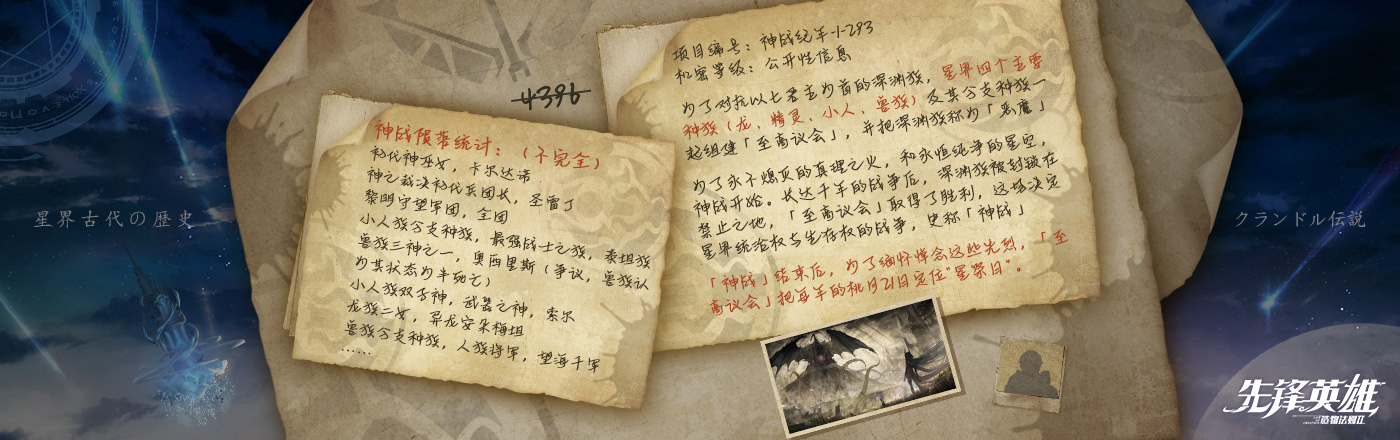 星界古代の歷史
4396
神战陨落统计：（不完全）
初代神巫女，卡尔达诺
神之裁决初代兵团长，圣雷丁
黎明守望军团，全团
小人族分支种族，最强战士之族，泰坦族
兽族三神之一，奥西里斯（争议，兽族认
为其状态为半死亡）
小人族双子神，武器之神，索尔
龙族二女，异龙安朵梅坦
兽族分支种族，人族将军，望海千军
……
项目编号：神战纪年-1-293
机密等级：公开性信息
为了对抗以七君主为首的深渊族，星界四个主要
种族（龙、精灵、小人、兽族）及其分支种族一
起组建「至高议会」，并把深渊族称为「恶魔」
为了永不熄灭的真理之火，和永恒纯净的星空，
神战开始。长达千年的战争后，深渊族被封锁在
禁止之地，「至高议会」取得了胜利，这场决定
星界统治权与生存权的战争，史称「神战」
「神战」结束后，为了缅怀悼念这些先烈，「至
高议会」把每年的桃月21日定位"星祭日"。
クランドル伝説
先锋英雄
造物法则II